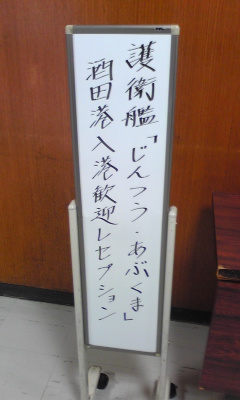 護衛艦「じんつう・あぶくま」
酒田港入港歓迎レセプション